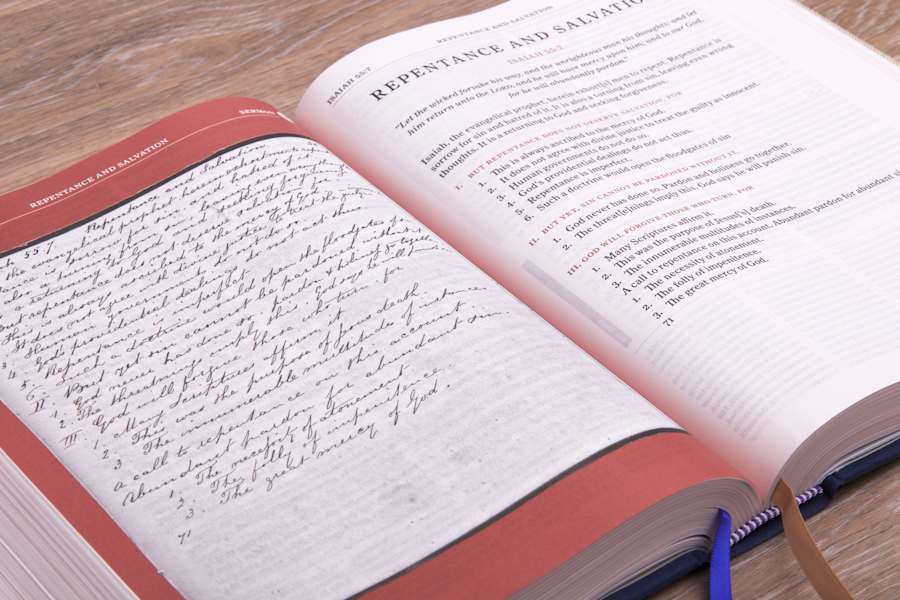 REPENTANCE AND SALVATION
SERMON
h 55 7 Repentance and Salvation
The evangelical prophet herein
sorrow for sin and hatred of it
a returning to God and seeking forgiveness
But repentance does not deserve
This is always ascribed to the mercy of God
It does not agree with divine justice to treat the
Human governments do not do so
4. God's providential dealings do not act thus
5. Repentance is imperfect
6. Such a doctrine would open the floodgates
II But yet sin cannot be pardoned without
1. God never has done so. pardon & holiness go together
2. The threatnings imply this God says he will
III God will forgive those who turn for
1. Many Scriptures affirm it
2. This was the purpose of Jesus death
3 The innumerable multitudes of instances
A call to repentance on this account
Abundant pardon for abundant sin.
1. The necessity of atonement
2. The folly of impenitence.
3. The great mercy of God.
71
ISAIAH 55:7
REPENTANCE AND SALVATION
REPENTANCE AND SALVATIO
ISAIAH 55:7
"Let the wicked forsake his way, and the unrighteous man his thoughts: and let
him return unto the LORD, and he will have mercy upon him; and to our God,
for he will abundantly pardon."
Isaiah, the evangelical prophet, herein exhort[s] men to repent. Repentance is
sorrow for sin and hatred of it. It is also a turning from sin, leaving even wrong
thoughts. It is a returning to God and seeking forgiveness.
I. BUT REPENTANCE DOES NOT DESERVE SALVATION, FOR
1. This is always ascribed to the mercy of God.
2. It does not agree with divine justice to treat the guilty as innocent
3. Human governments do not do so.
4. God's providential dealings do not act thus.
5. Repentance is imperfect.
6. Such a doctrine would open the floodgates of sin
II. BUT YET, SIN CANNOT BE PARDONED WITHOUT IT
1. God never has done so. Pardon and holiness go together
2. The threat[e]nings imply this. God says he will punish sin.
III. GOD WILL FORGIVE THOSE WHO TURN, FOR
1. Many Scriptures affirm it.
2. This was the purpose of Jesus['s] death.
3. The innumerable multitudes of instances.
A call to repentance on this account. Abundant pardon for abundant
1. The necessity of atonement.
2. The folly of impenitence.
3. The great mercy of God.
71